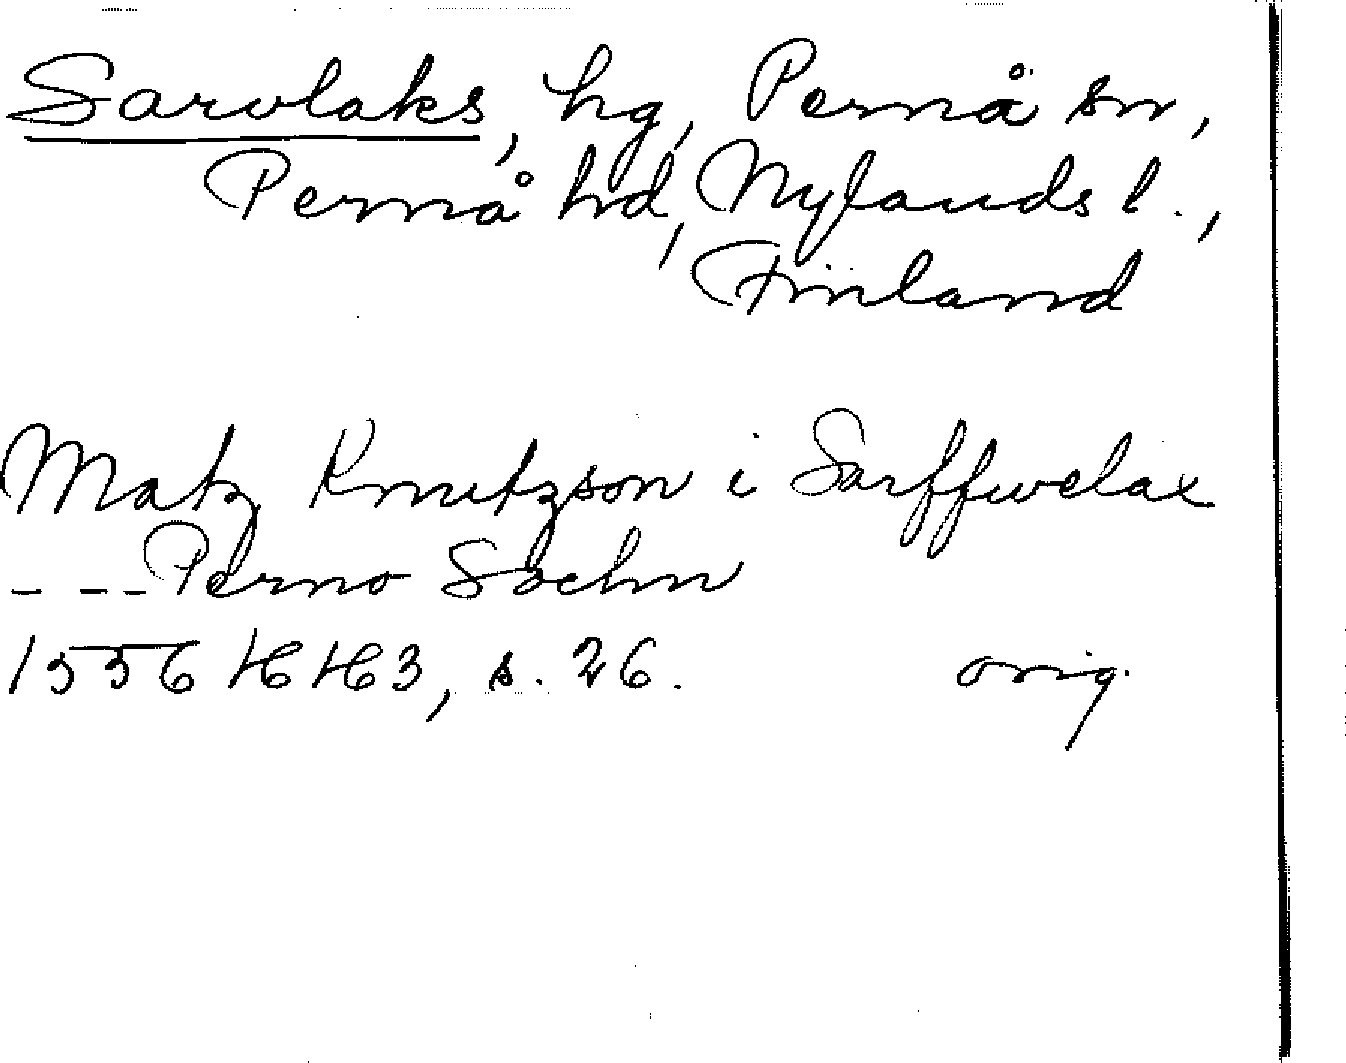 Sarvlaks, hg, Pernå sn,
Pernå hd, Nylands l.,
Finland
Matz Knutzson i Sarffwelax
- - - Perno Sochn
1556 HH3, s. 26. orig.